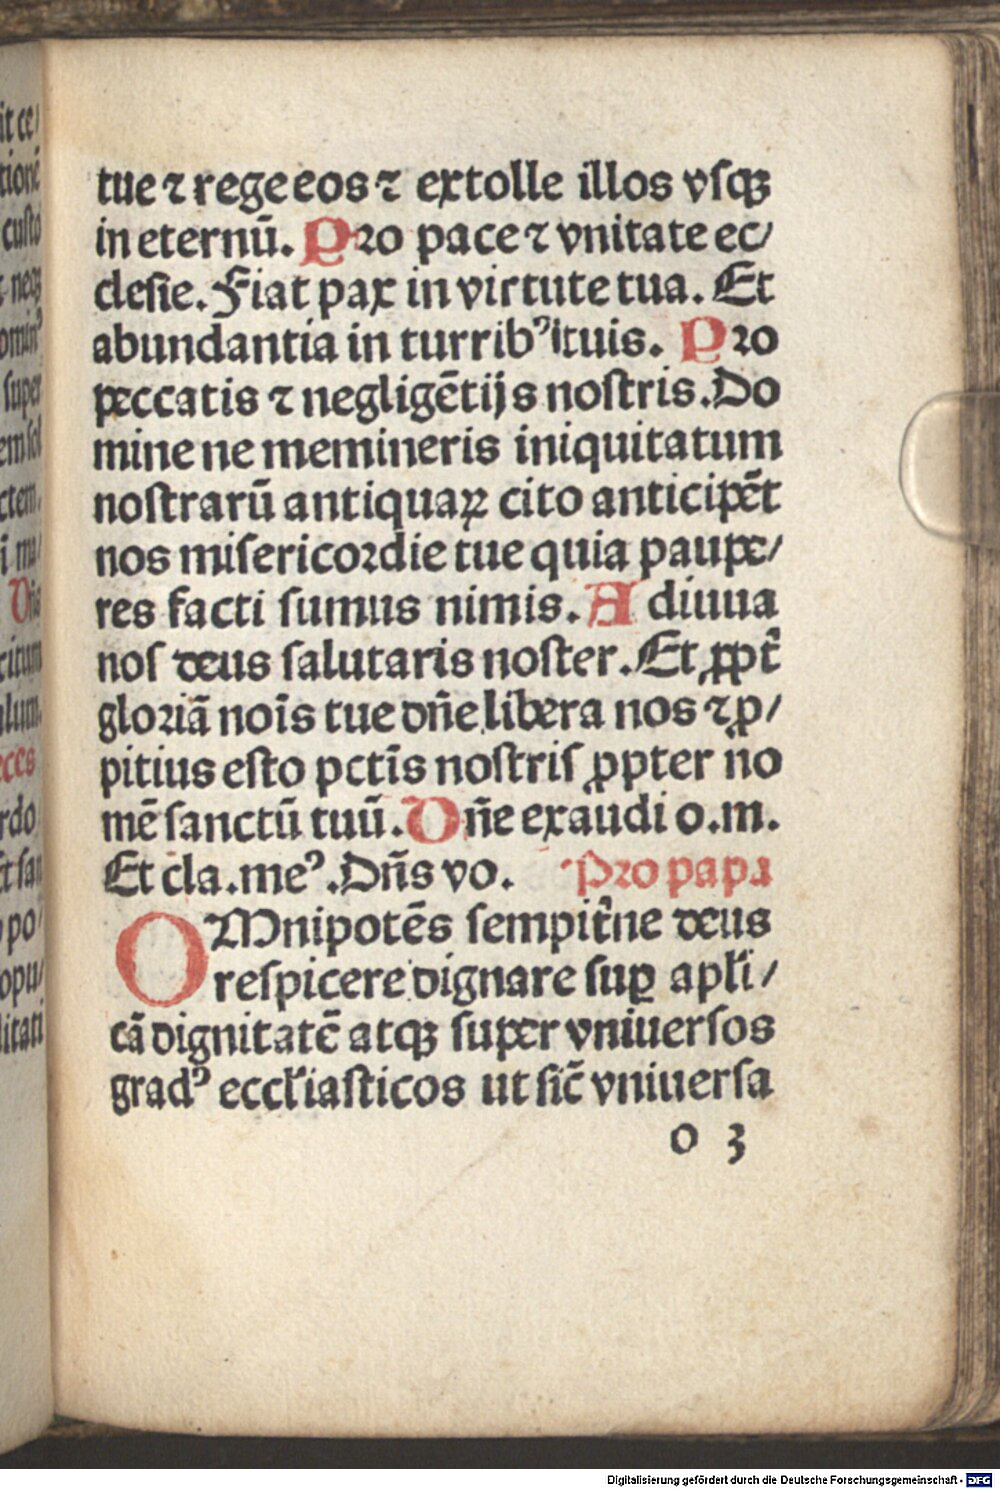 tue ⁊ rege eos ⁊ extolle illos vſqꝫ
in eternū. Pro pace ⁊ vnitate ec/
cleſie. Fiat pax in virtute tua. Et
abundantia in turribꝰ tuis. Pro
peccatis ⁊ negligētijs noſtris. Do
mine ne memineris iniquitatum
noſtrarū antiquaꝝ cito anticipēt
nos miſericordie tue quia paupe/
res facti ſumus nimis. A diuua
noſ deus ſalutaris noſter. Et ꝓpt̄
gloriā noīs tue dn̄e libera nos ⁊ ꝓ/
pitius eſto pctīs noſtriſ ꝓpter no
mē ſanctū tuū. Dn̄e exaudi o.m.
Et cla.meꝰ. Dn̄s vo. Pro papa
OMnipotēs ſempit̄ne deus
reſpicere dignare ſuꝑ apl̄i/
cā dignitatē atqꝫ ſuper vniuerſos
gradꝰ eccl̄iaſticos ut ſic̄ vniuerſa
o 3
Digitalisierung gefördert durch die Deutsche Forschungsgemeinschaft - DFG